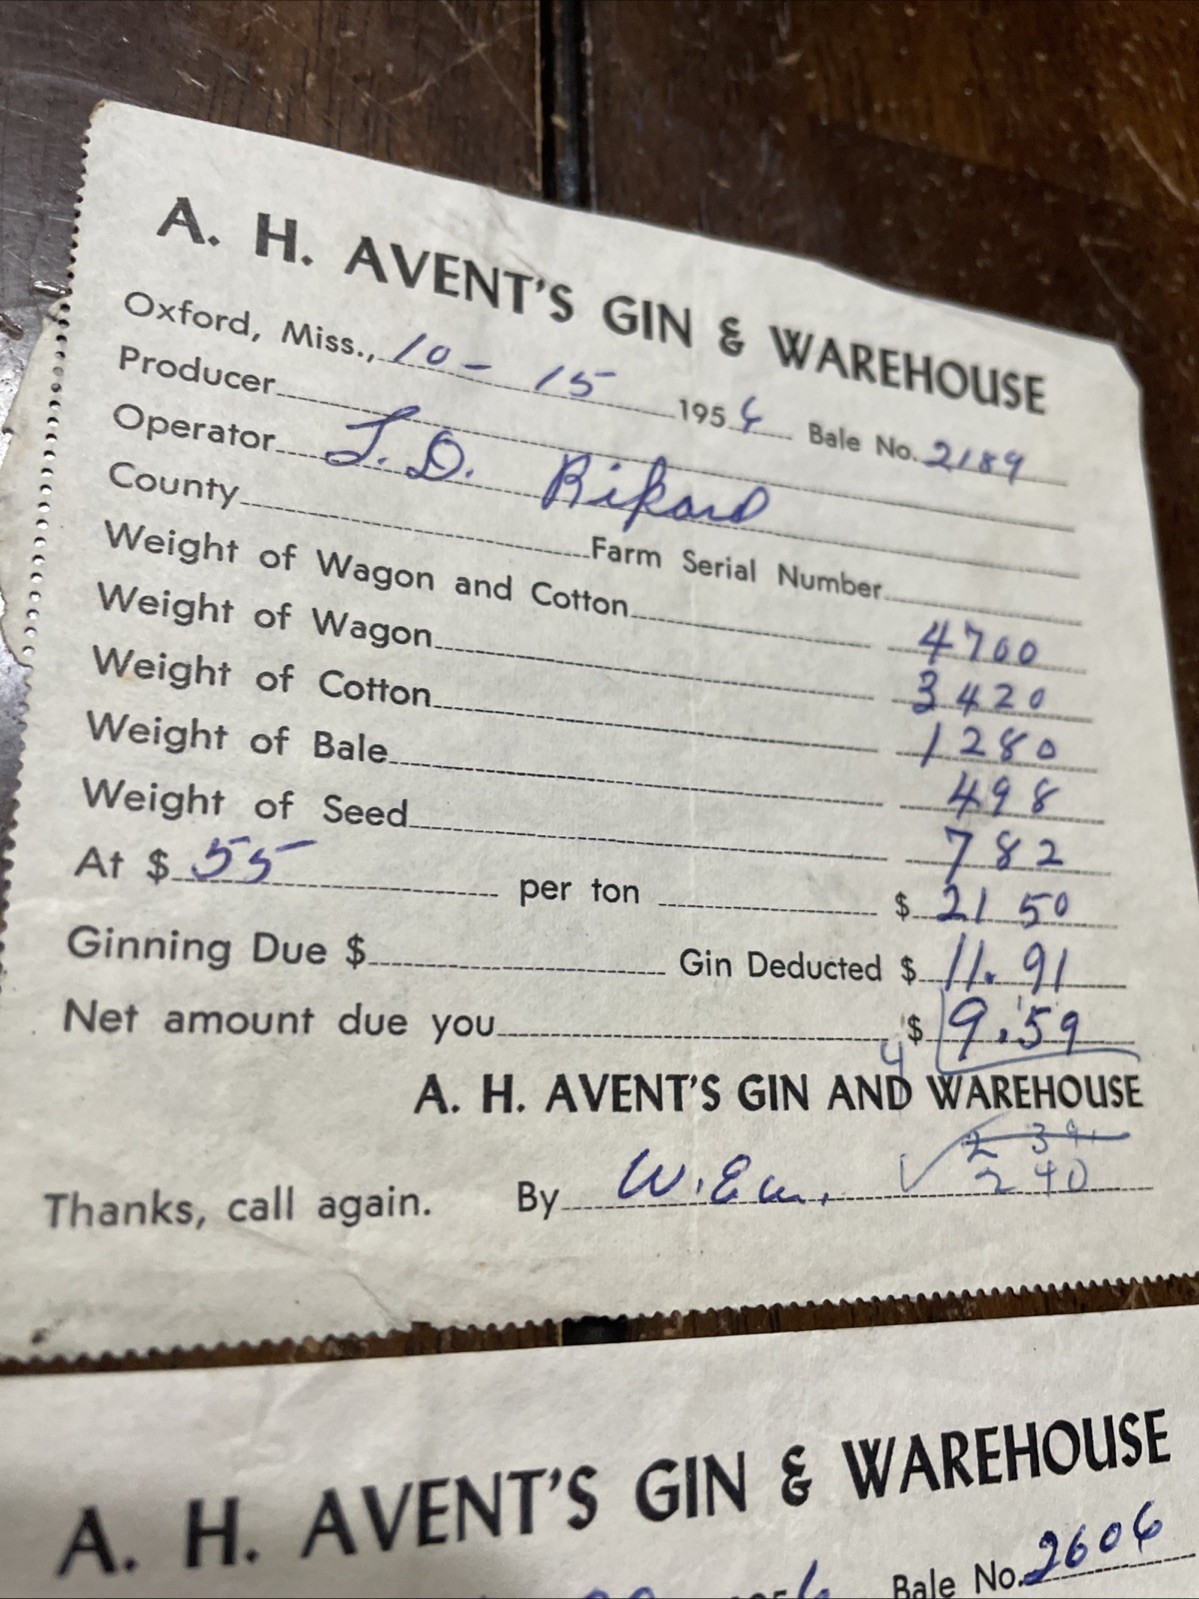 A. H. AVENT'S GIN & WAREHOUSE
Oxford, Miss., 10 - 15 1956 Bale No. 2189
Producer
Operator J. D. Rikard
County Farm Serial Number
Weight of Wagon and Cotton 4700
Weight of Wagon 3420
Weight of Cotton 1280
Weight of Bale 498
Weight of Seed 782
At $ 55 per ton $ 21 50
Ginning Due $ Gin Deducted $ 11.91
Net amount due you $ 9.59
A. H. AVENT'S GIN AND WAREHOUSE
2 39
2 40
Thanks, call again. By
A. H. AVENT'S GIN & WAREHOUSE
Bale No. 2606